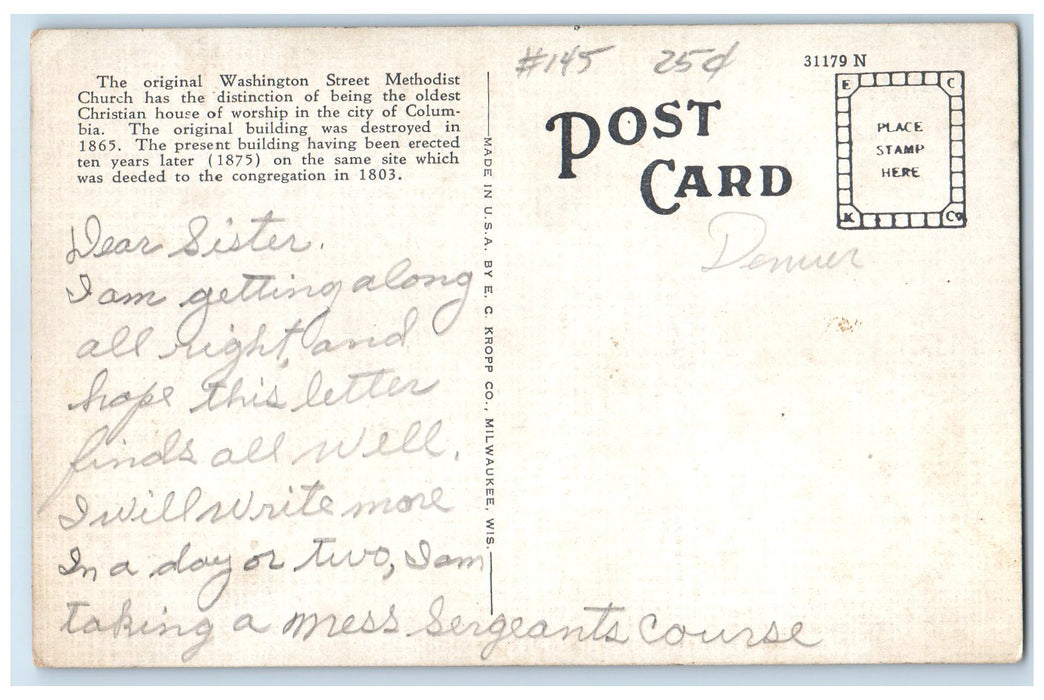 #145 25¢
31179 N
The original Washington Street Methodist
Church has the distinction of being the oldest
Christian house of worship in the city of Colum-
bia. The original building was destroyed in
1865. The present building having been erected
ten years later (1875) on the same site which
was deeded to the congregation in 1803.
POST
CARD
E C
PLACE
STAMP
HERE
K Co
MADE IN U.S.A. BY E. C. KROPP CO., MILWAUKEE, WIS.
Dear Sister.
I am getting along
all right, and
hope this letter
finds all well.
I will write more
In a day or two, I am
taking a mess Sergeants course